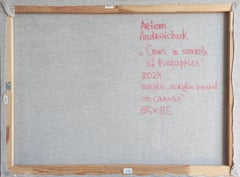 Artem
Andreichuk
„Cows in search
of Pineapples"
2024
acrylic, acrylic pastel
on canvas
85x115